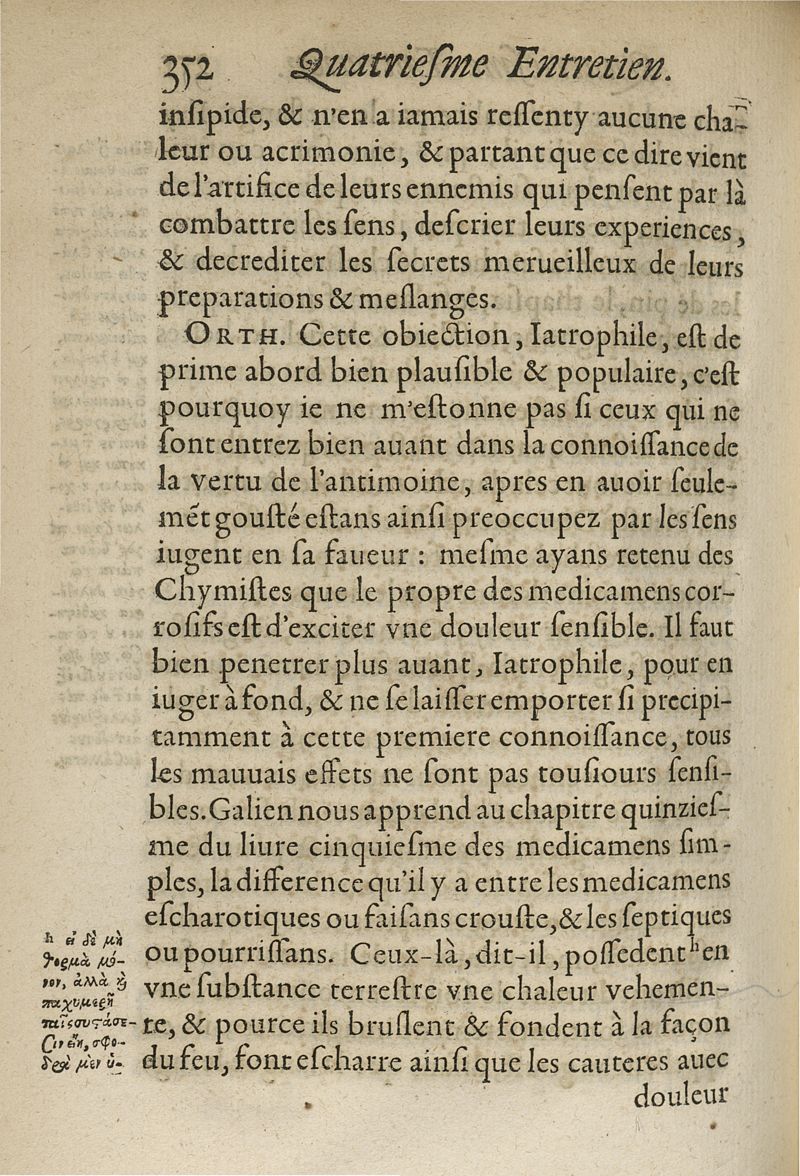 352 Quatrieſme Entretien.
inſipide, & n'en a iamais reſſenty aucune cha-
leur ou acrimonie, & partant que ce dire vient
de l'artifice de leurs ennemis qui penſent par là
combattre les ſens, deſcrier leurs experiences,
& decrediter les ſecrets merueilleux de leurs
preparations & meſlanges.
ORTH. Cette obiection, Iatrophile, eſt de
prime abord bien plauſible & populaire, c'eſt
pourquoy ie ne m'eſtonne pas ſi ceux qui ne
ſont entrez bien auant dans la connoiſſance de
la vertu de l'antimoine, apres en auoir ſeule-
mẽt gouſté eſtans ainſi preoccupez par les ſens
iugent en ſa faueur : meſme ayans retenu des
Chymiſtes que le propre des medicamens cor-
roſifs eſt d'exciter vne douleur ſenſible. Il faut
bien penetrer plus auant, Iatrophile, pour en
iuger à fond, & ne ſe laiſſer emporter ſi precipi-
tamment à cette premiere connoiſſance, tous
les mauuais effets ne ſont pas touſiours ſenſi-
bles. Galien nous apprend au chapitre quinzieſ-
me du liure cinquieſme des medicamens ſim-
ples, la difference qu'il y a entre les medicamens
eſcharotiques ou faiſans crouſte, & les ſeptiques
ou pourriſſans. Ceux-là, dit-il, poſſedent h en
vne ſubſtance terreſtre vne chaleur vehemen-
te, & pource ils bruſlent & fondent à la façon
du feu, font eſcharre ainſi que les cauteres auec
douleur
h εἰ δὲ μὴ
θερμὰ μό-
νον, ἀλλὰ καὶ
παχυμερῆ
ταῖς συστάσε-
σιν εἴη, σφο-
δρὰ μὲν ὑ-